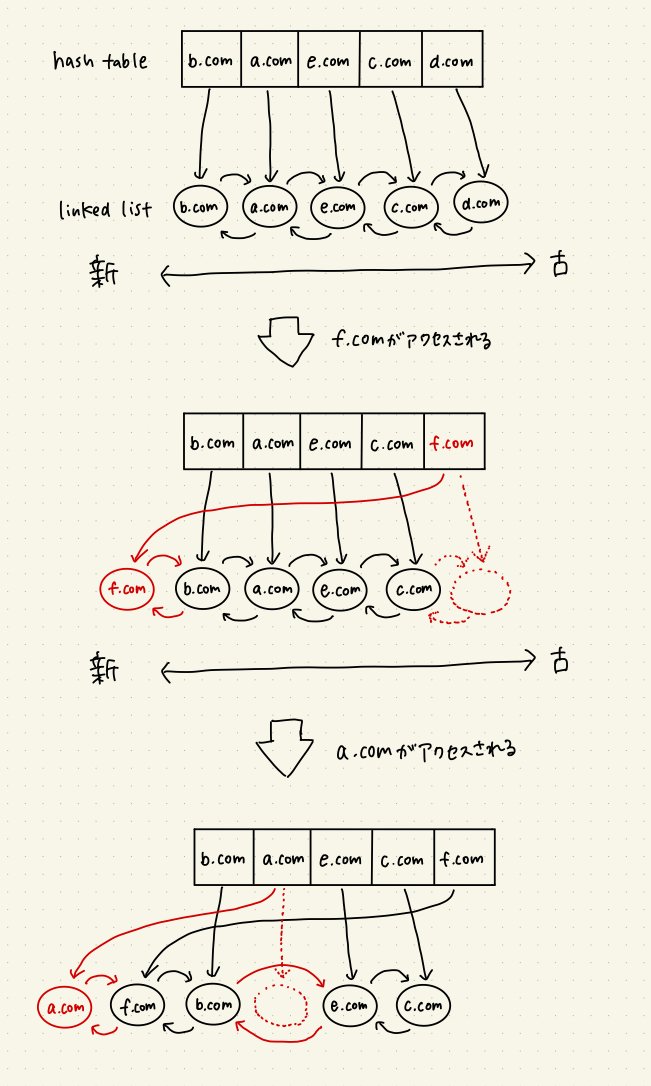 hash table b.com a.com e.com c.com d.com
linked list b.com a.com e.com c.com d.com
新 古
f.comがアクセスされる
b.com a.com e.com c.com f.com
f.com b.com a.com e.com c.com
新 古
a.comがアクセスされる
b.com a.com e.com c.com f.com
a.com f.com b.com e.com c.com